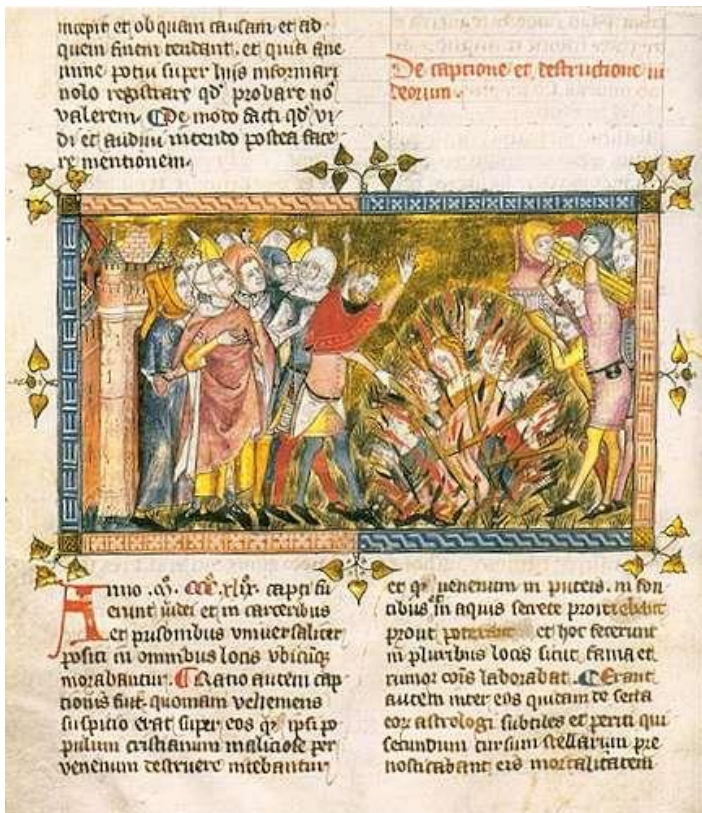 incepit et ob quam causam et ad
quem finem tendant. et quia ane
mine potui super hiis informari
nolo registrare qd' probare no
valerem. De modo facti qd' vi
di et audiui intendo postea face
re mentionem.
De captione et destructione iu
deorum.
Anno .M. CCC. xlix. capti fu
erunt iudei et in carceribus
et prisonibus vniuersaliter
positi in omnibus locis vbicūq
morabantur. Ratio autem cap
tionis fuit. quoniam vehemens
suspicio erat super eos q ipsi po
pulum cristianum maliciose per
venenum destruere nitebantur
et q venenum in puteis. in fon
tibus et in aquis secrete proiciebāt
prout poterant et hoc fecerunt
in pluribus locis sicut fama et
rumor cōis laborabat. Erant
autem inter eos quidam de secta
eor astrologi subtiles et periti qui
secundum cursum stellarum pre
nosticabant eis mortalitatem